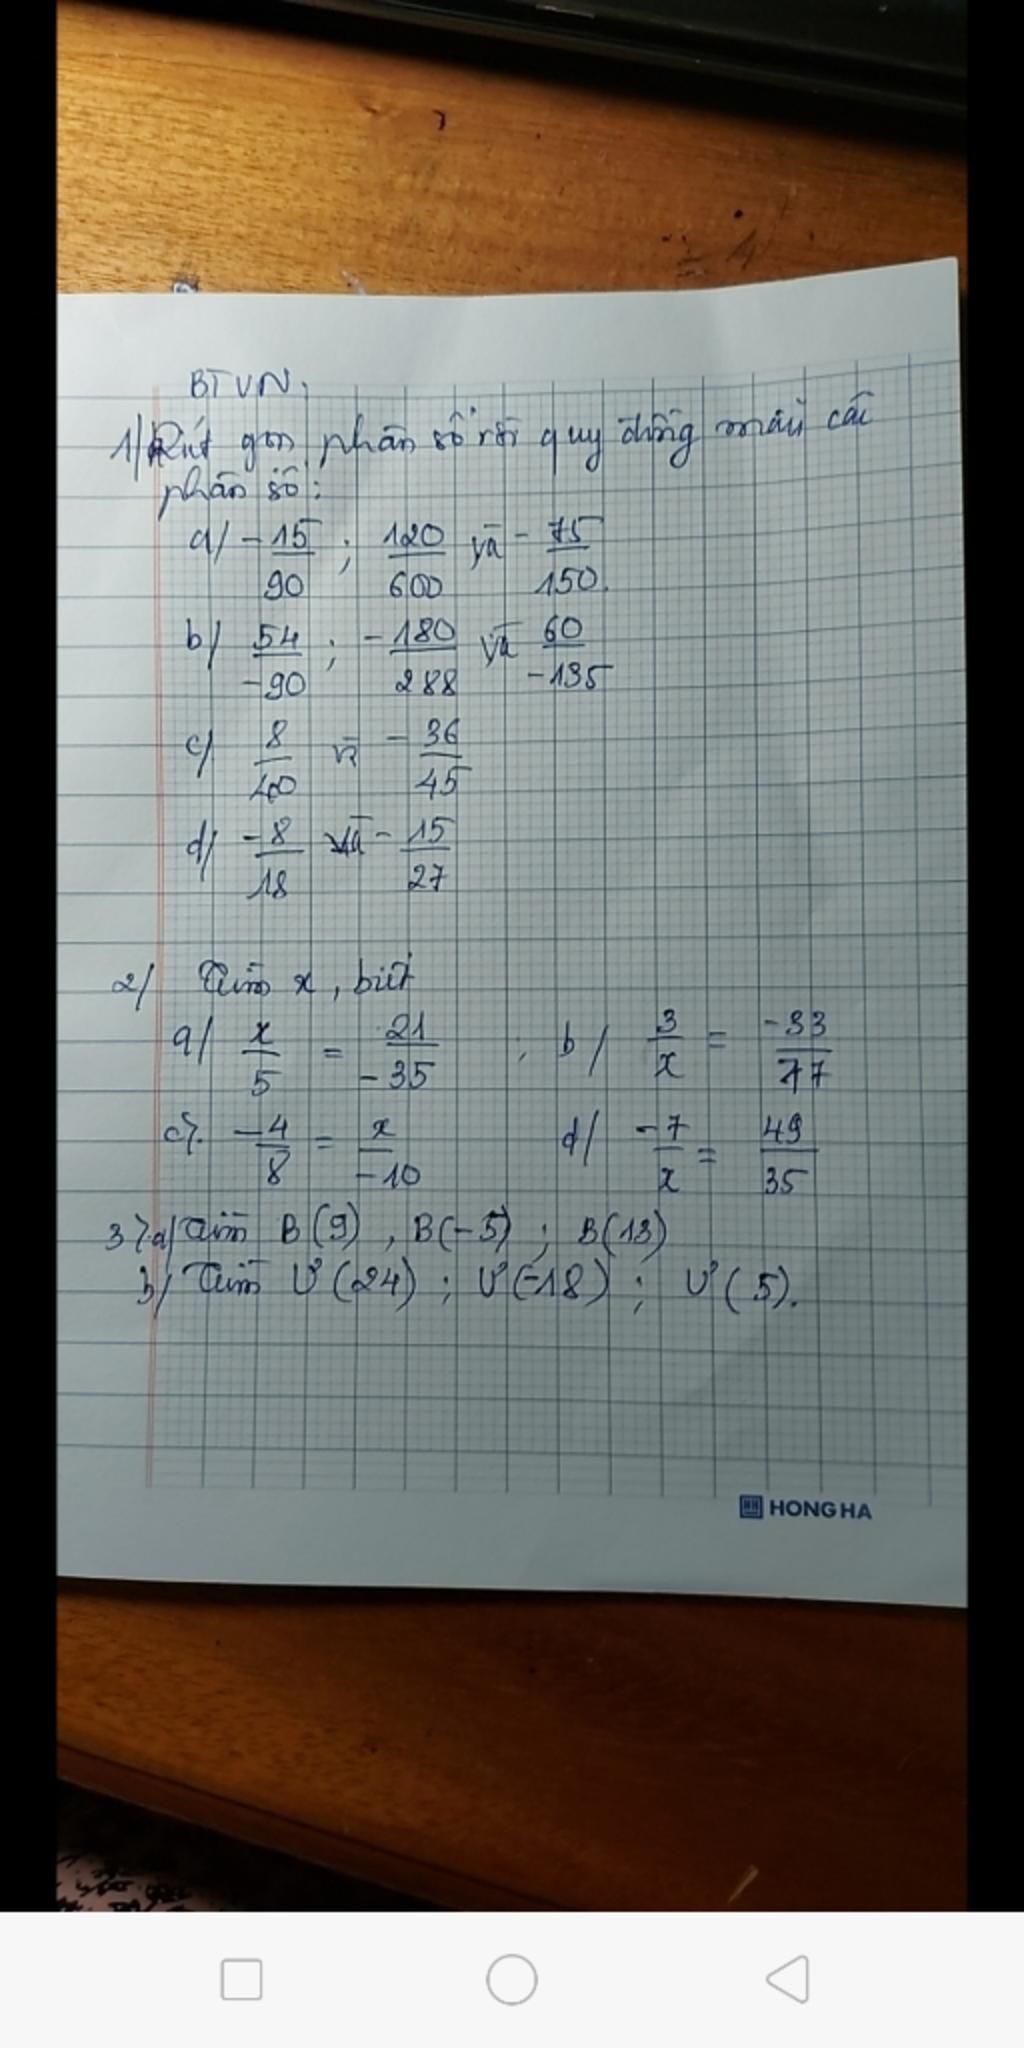 BTVN.
1/ Rút gọn phân số rồi quy đồng mẫu các
phân số:
a/ -15/90 ; 120/600 và -75/150.
b/ 54/-90 ; -180/288 và 60/-135
c/ 8/40 và -36/45
d/ -8/18 và -15/27
2/ Tìm x, biết
a/ x/5 = 21/-35 ; b/ 3/x = -33/77
c/. -4/8 = x/-10 d/ -7/x = 49/35
3/.a/ Tìm B(9), B(-5) ; B(13)
b/ Tìm Ư(24) ; Ư(-18) ; Ư(5).
HONG HA